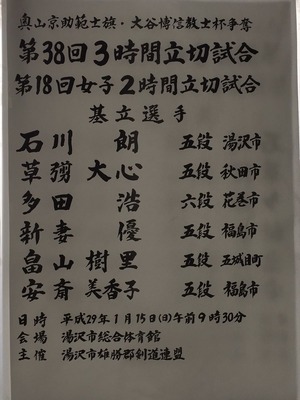 奥山京助範士旗・大谷博信教士杯争奪
第38回3時間立切試合
第18回女子2時間立切試合
基立選手
石川 朗 五段 湯沢市
草彅大心 五段 秋田市
多田 浩 六段 花巻市
新妻 優 五段 福島市
畠山樹里 五段 五城目町
安斉美香子 五段 福島市
日時 平成29年1月15日(日)午前9時30分
会場 湯沢市総合体育館
主催 湯沢市雄勝郡剣道連盟